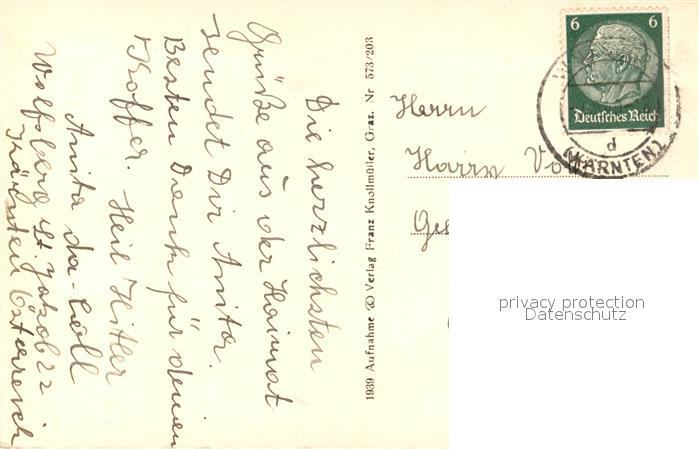 Die herzlichsten
Grüße aus der Heimat
sendet Dir Anita.
Besten Dank für deinen
Koffer. Heil Hitler
Anita
Wolfsberg St. Jakob 22
Kärnten Österreich
1939 Aufnahme Verlag Franz Knollmüller, Graz. Nr 573/203
Herrn
Harry
6 6
Deutsches Reich
d
(KÄRNTEN)
privacy protection
Datenschutz